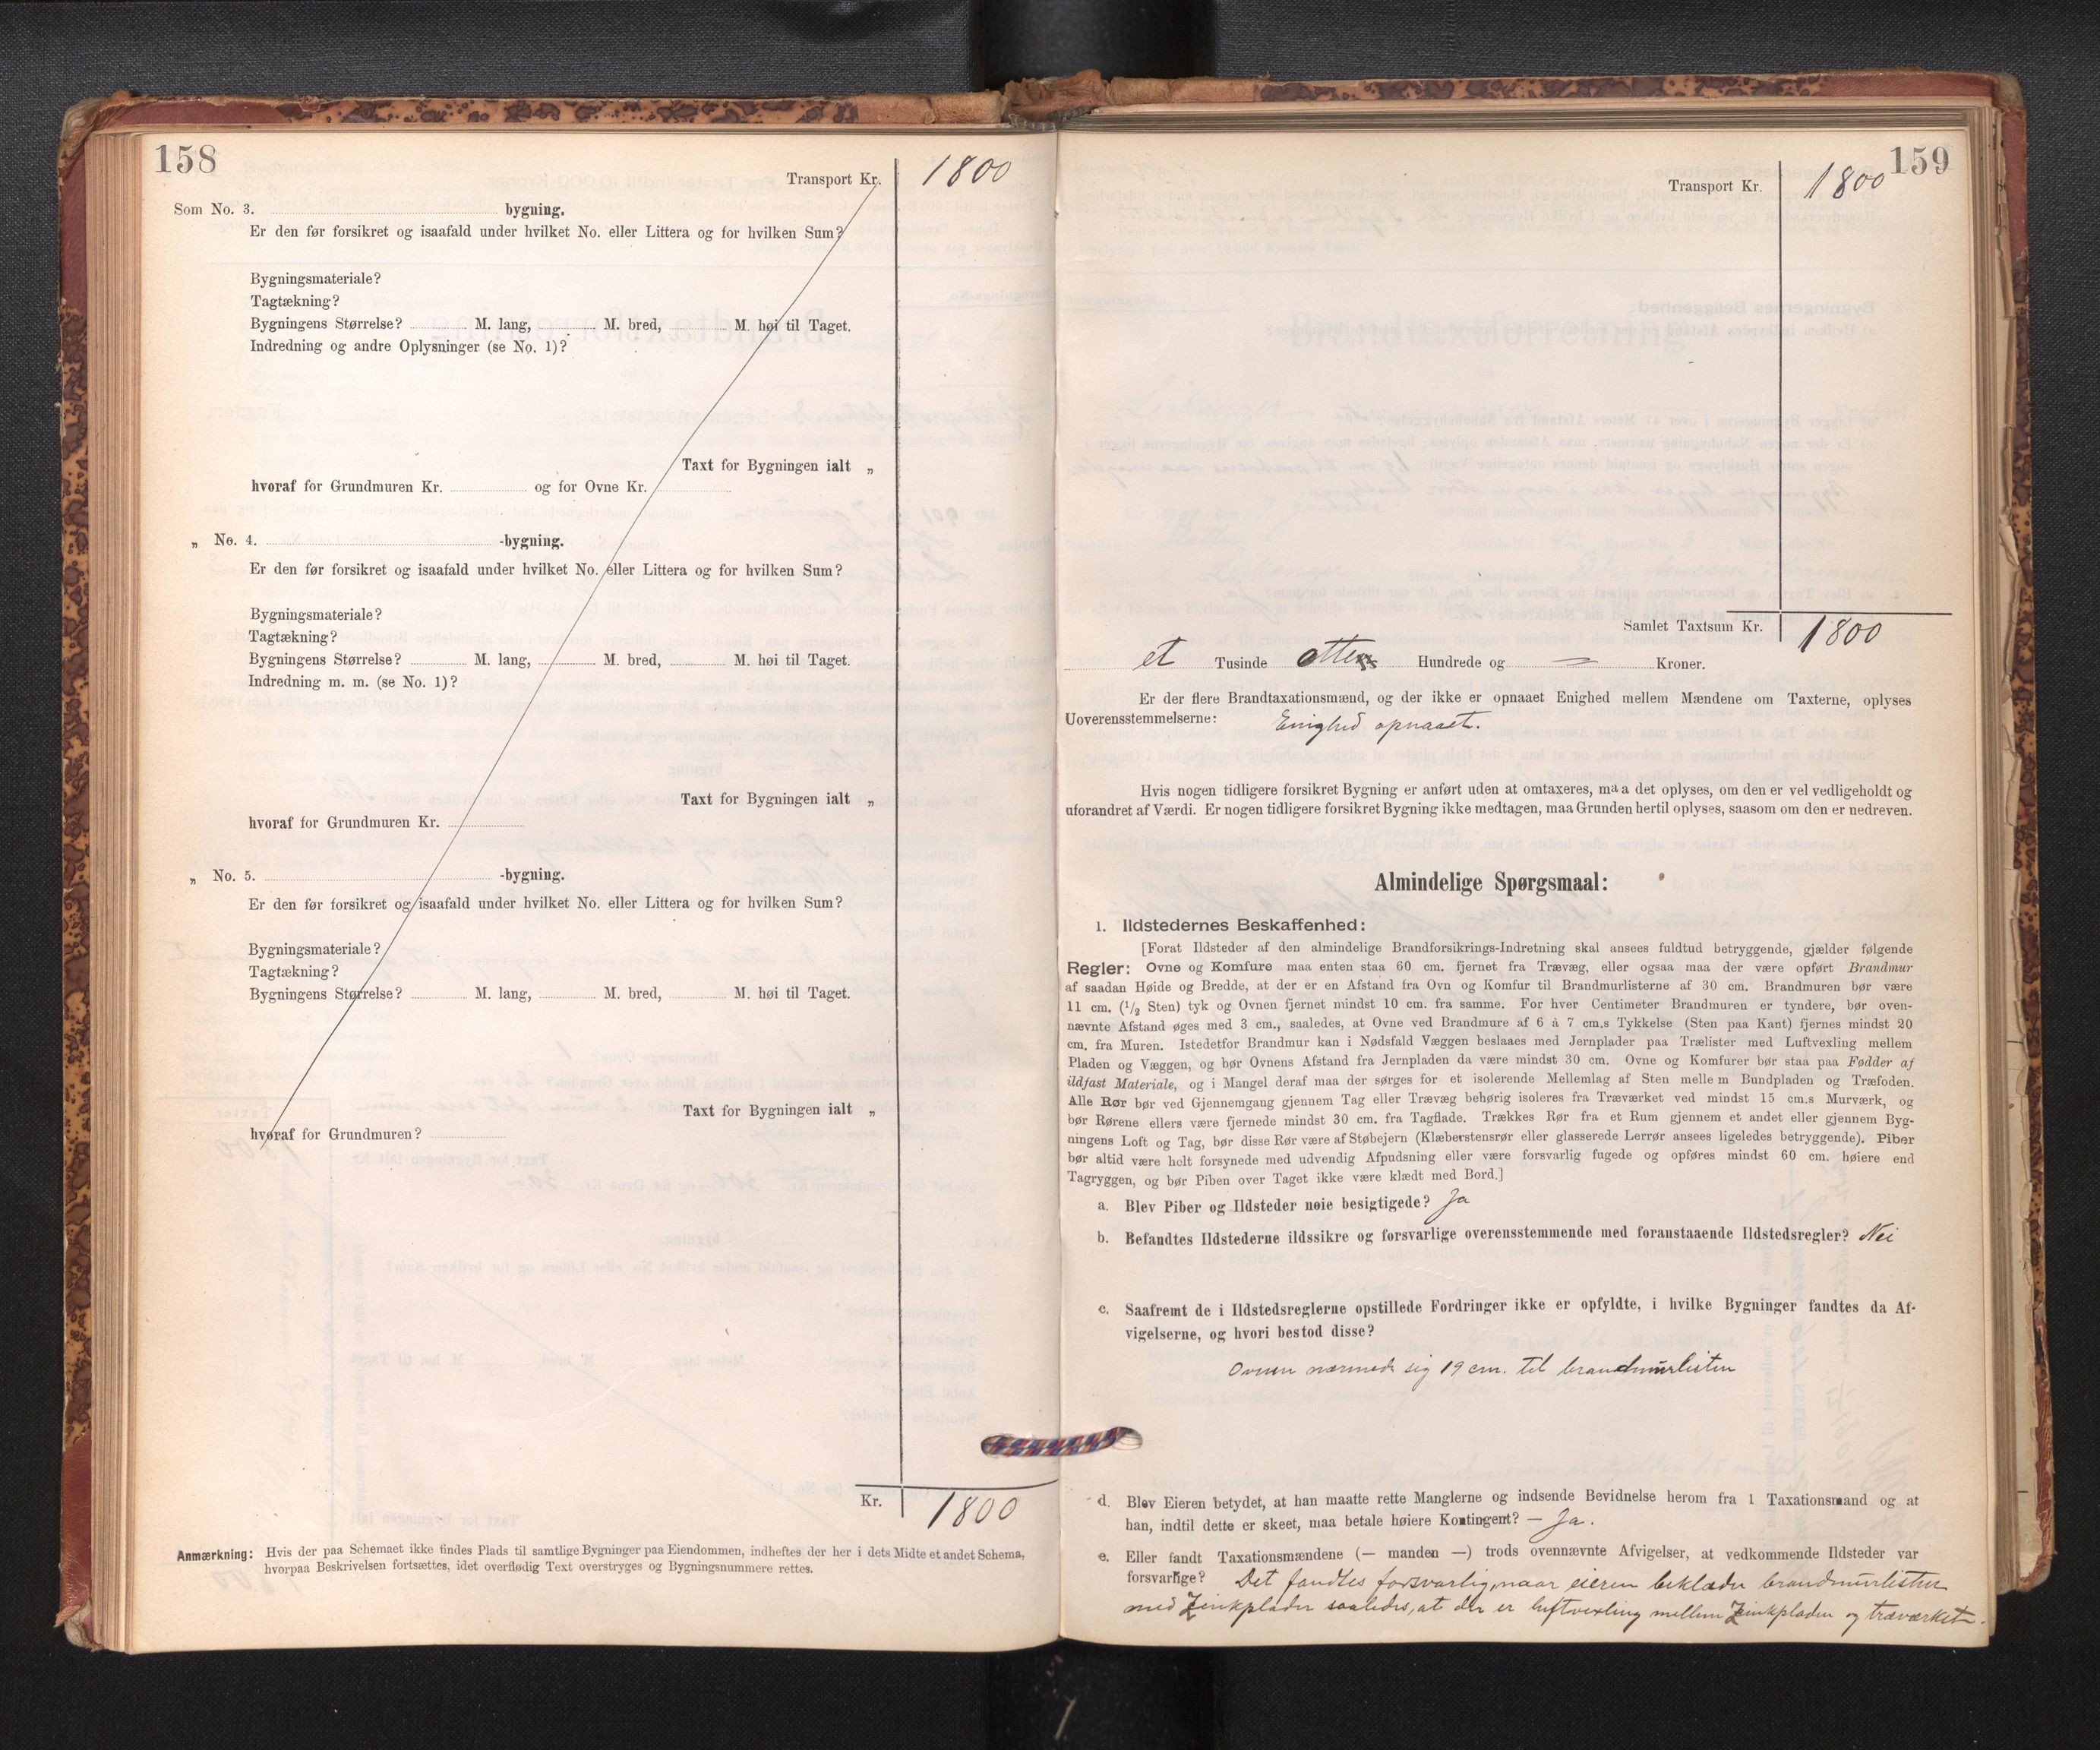 158
Transport Kr. 1800
Som No. 3. bygning.
Er den før forsikret og isaafald under hvilket No. eller Littera og for hvilken Sum?
Bygningsmateriale?
Tagtækning?
Bygningens Størrelse? M. lang, M. bred, M. høi til Taget.
Indredning og andre Oplysninger (se No. 1)?
Taxt for Bygningen ialt „
hvoraf for Grundmuren Kr. og for Ovne Kr.
„ No. 4. -bygning.
Er den før forsikret og isaafald under hvilket No. eller Littera og for hvilken Sum?
Bygningsmateriale?
Tagtækning?
Bygningens Størrelse? M. lang, M. bred, M. høi til Taget.
Indredning m. m. (se No. 1)?
Taxt for Bygningen ialt „
hvoraf for Grundmuren Kr.
„ No. 5. -bygning.
Er den før forsikret og isaafald under hvilket No. eller Littera og for hvilken Sum?
Bygningsmateriale?
Tagtækning?
Bygningens Størrelse? M. lang, M. bred, M. høi til Taget.
Taxt for Bygningen ialt „
hvoraf for Grundmuren?
Kr. 1800
Anmærkning: Hvis der paa Schemaet ikke findes Plads til samtlige Bygninger paa Eiendommen, indheftes der her i dets Midte et andet Schema,
hvorpaa Beskrivelsen fortsættes, idet overflødig Text overstryges og Bygningsnummere rettes.
159
Transport Kr. 1800
Samlet Taxtsum Kr. 1800
et Tusinde otte Hundrede og — Kroner.
Er der flere Brandtaxationsmænd, og der ikke er opnaaet Enighed mellem Mændene om Taxterne, oplyses
Uoverensstemmelserne: Enighed opnaaet.
Hvis nogen tidligere forsikret Bygning er anført uden at omtaxeres, maa det oplyses, om den er vel vedligeholdt og
uforandret af Værdi. Er nogen tidligere forsikret Bygning ikke medtagen, maa Grunden hertil oplyses, saasom om den er nedreven.
Almindelige Spørgsmaal:
1. Ildstedernes Beskaffenhed:
[Forat Ildsteder af den almindelige Brandforsikrings-Indretning skal ansees fuldtud betryggende, gjælder følgende
Regler: Ovne og Komfure maa enten staa 60 cm. fjernet fra Trævæg, eller ogsaa maa der være opført Brandmur
af saadan Høide og Bredde, at der er en Afstand fra Ovn og Komfur til Brandmurlisterne af 30 cm. Brandmuren bør være
11 cm. (1/2 Sten) tyk og Ovnen fjernet mindst 10 cm. fra samme. For hver Centimeter Brandmuren er tyndere, bør oven-
nævnte Afstand øges med 3 cm., saaledes, at Ovne ved Brandmure af 6 à 7 cm.s Tykkelse (Sten paa Kant) fjernes mindst 20
cm. fra Muren. Istedetfor Brandmur kan i Nødsfald Væggen beslaaes med Jernplader paa Trælister med Luftvexling mellem
Pladen og Væggen, og bør Ovnens Afstand fra Jernpladen da være mindst 30 cm. Ovne og Komfurer bør staa paa Fødder af
ildfast Materiale, og i Mangel deraf maa der sørges for et isolerende Mellemlag af Sten mellem Bundpladen og Træfoden.
Alle Rør bør ved Gjennemgang gjennem Tag eller Trævæg behørig isoleres fra Træværket ved mindst 15 cm.s Murværk, og
bør Rørene ellers være fjernede mindst 30 cm. fra Tagflade. Trækkes Rør fra et Rum gjennem et andet eller gjennem Byg-
ningens Loft og Tag, bør disse Rør være af Støbejern (Klæberstensrør eller glasserede Lerrør ansees ligeledes betryggende). Piber
bør altid være holt forsynede med udvendig Afpudsning eller være forsvarlig fugede og opføres mindst 60 cm. høiere end
Tagryggen, og bør Piben over Taget ikke være klædt med Bord.]
a. Blev Piber og Ildsteder nøie besigtigede? Ja
b. Befandtes Ildstederne ildssikre og forsvarlige overensstemmende med foranstaaende Ildstedsregler? Nei
c. Saafremt de i Ildstedsreglerne opstillede Fordringer ikke er opfyldte, i hvilke Bygninger fandtes da Af-
vigelserne, og hvori bestod disse?
Ovnen nærmede sig 19 cm. til brandmurlisten
d. Blev Eieren betydet, at han maatte rette Manglerne og indsende Bevidnelse herom fra 1 Taxationsmand og at
han, indtil dette er skeet, maa betale høiere Kontingent? — Ja.
e. Eller fandt Taxationsmændene (— manden —) trods ovennævnte Afvigelser, at vedkommende Ildsteder var
forsvarlige? Det fandtes forsvarlig, naar eieren beklæder brandmurlisten
med Zinkplader saaledes, at der er luftvexling mellem Zinkpladen og træværket.